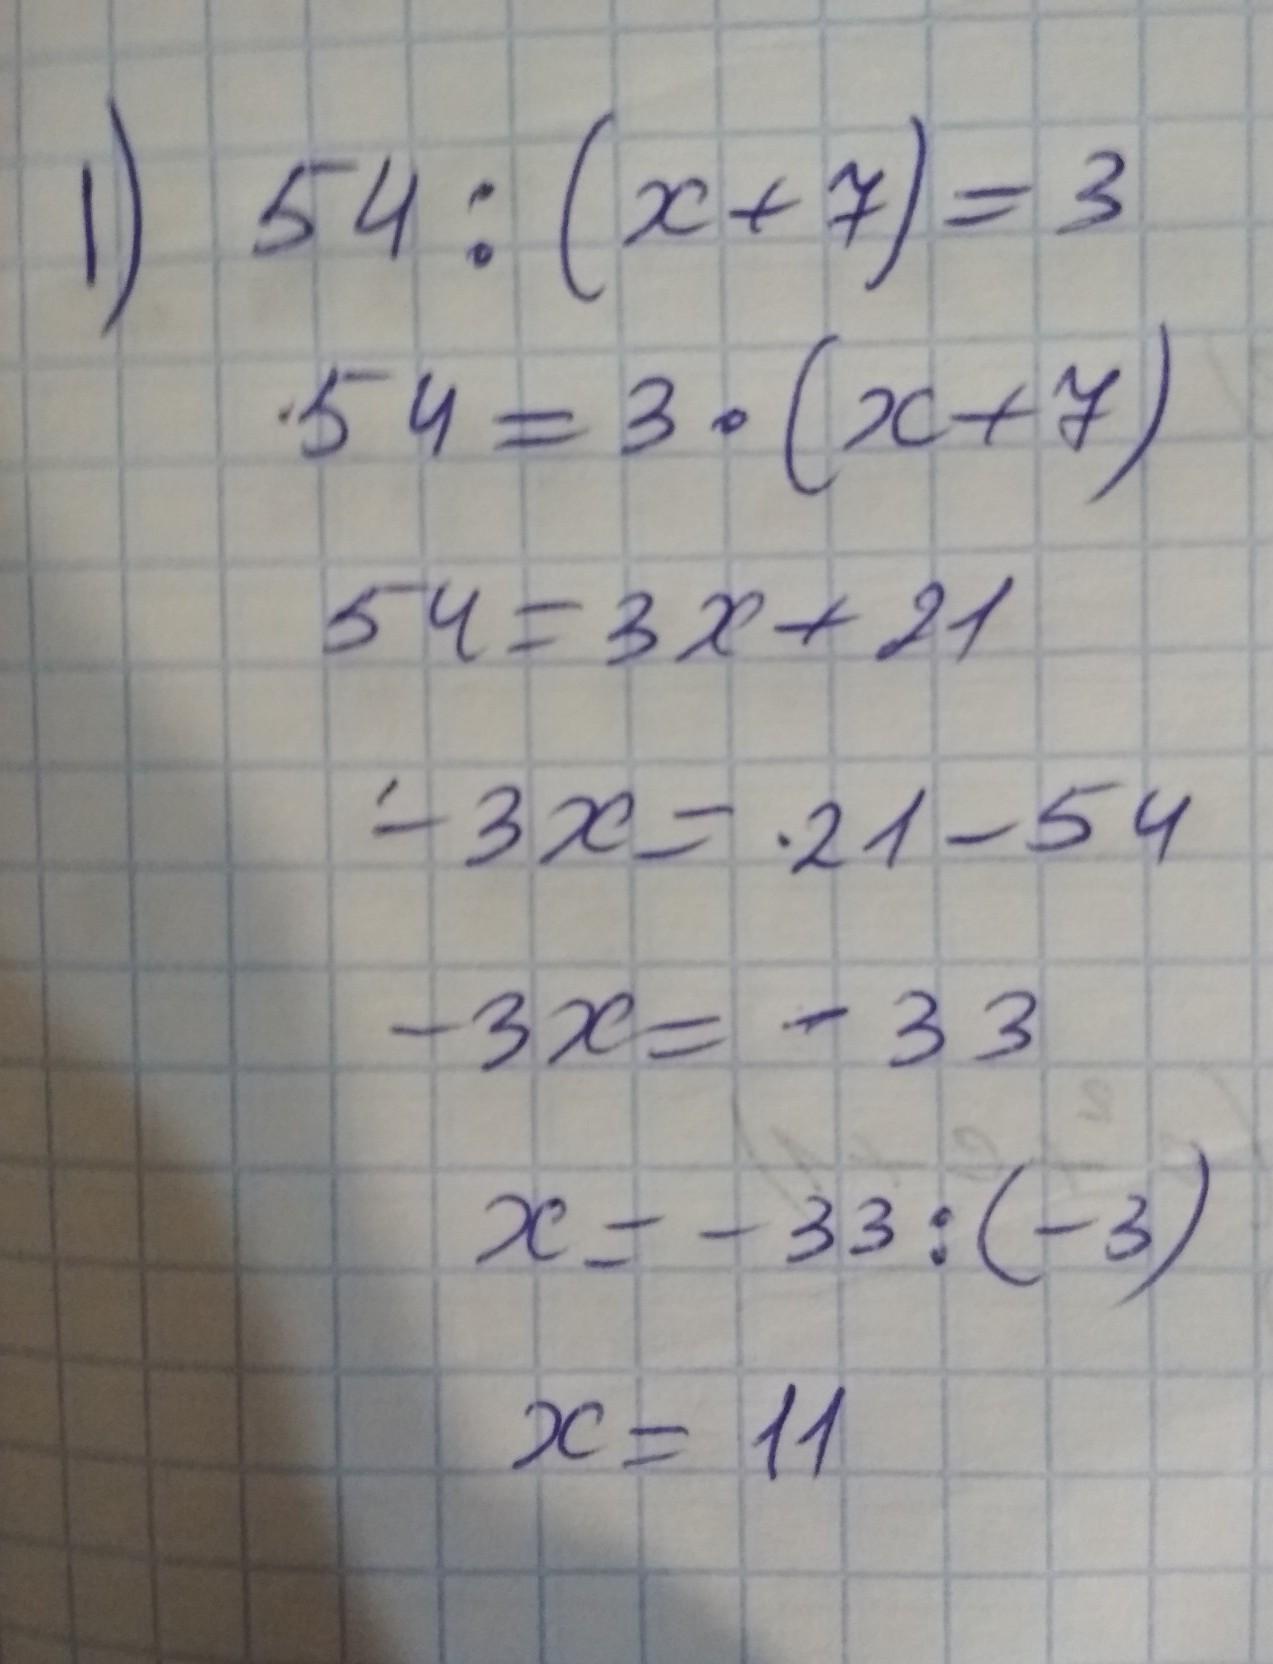 1) 54 : (x + 7) = 3
54 = 3 · (x + 7)
54 = 3x + 21
-3x = 21 - 54
-3x = -33
x = -33 : (-3)
x = 11